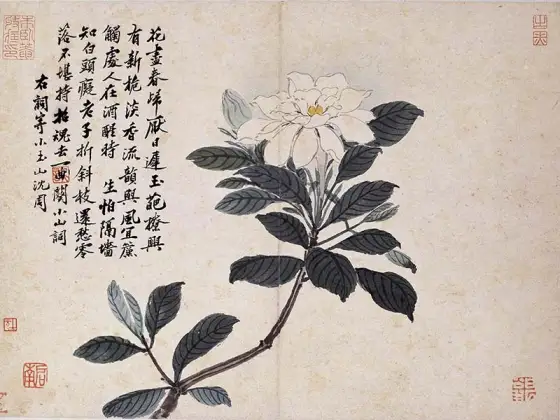 花盡春歸厭日遲玉葩撩興
有新梔淡香流韻與風宜簾
觸處人在酒醒時 生怕隔墻
知白頭癡老子折斜枝還愁零
落不堪持招魂去一曲闋小山詞
右詞寄小玉山沈周